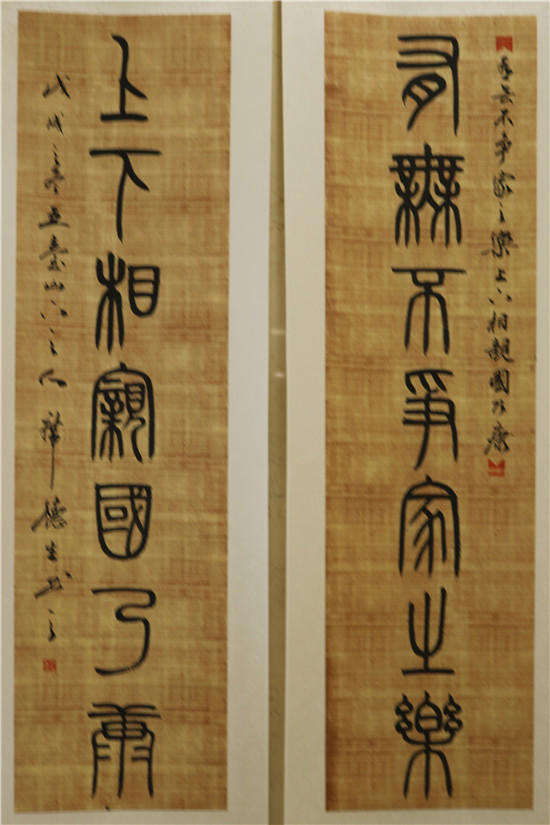 有無不爭家之樂上下相親國乃康
有無不爭家之樂
上下相親國乃康
戊戌之冬五臺山德生